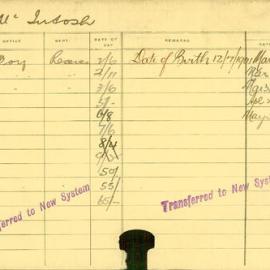 Mc Intosh
OFFICE DEPT. DATE OF PAY REMARKS
Boy 2/6 Date of Birth 12/7/191 Mar
2/11 Mar
3/6 Mar
5/- Apl 2
6/8 May
7/6
8/4
50/-
55/-
65/-
ferred to New System
Transferred to New Syste